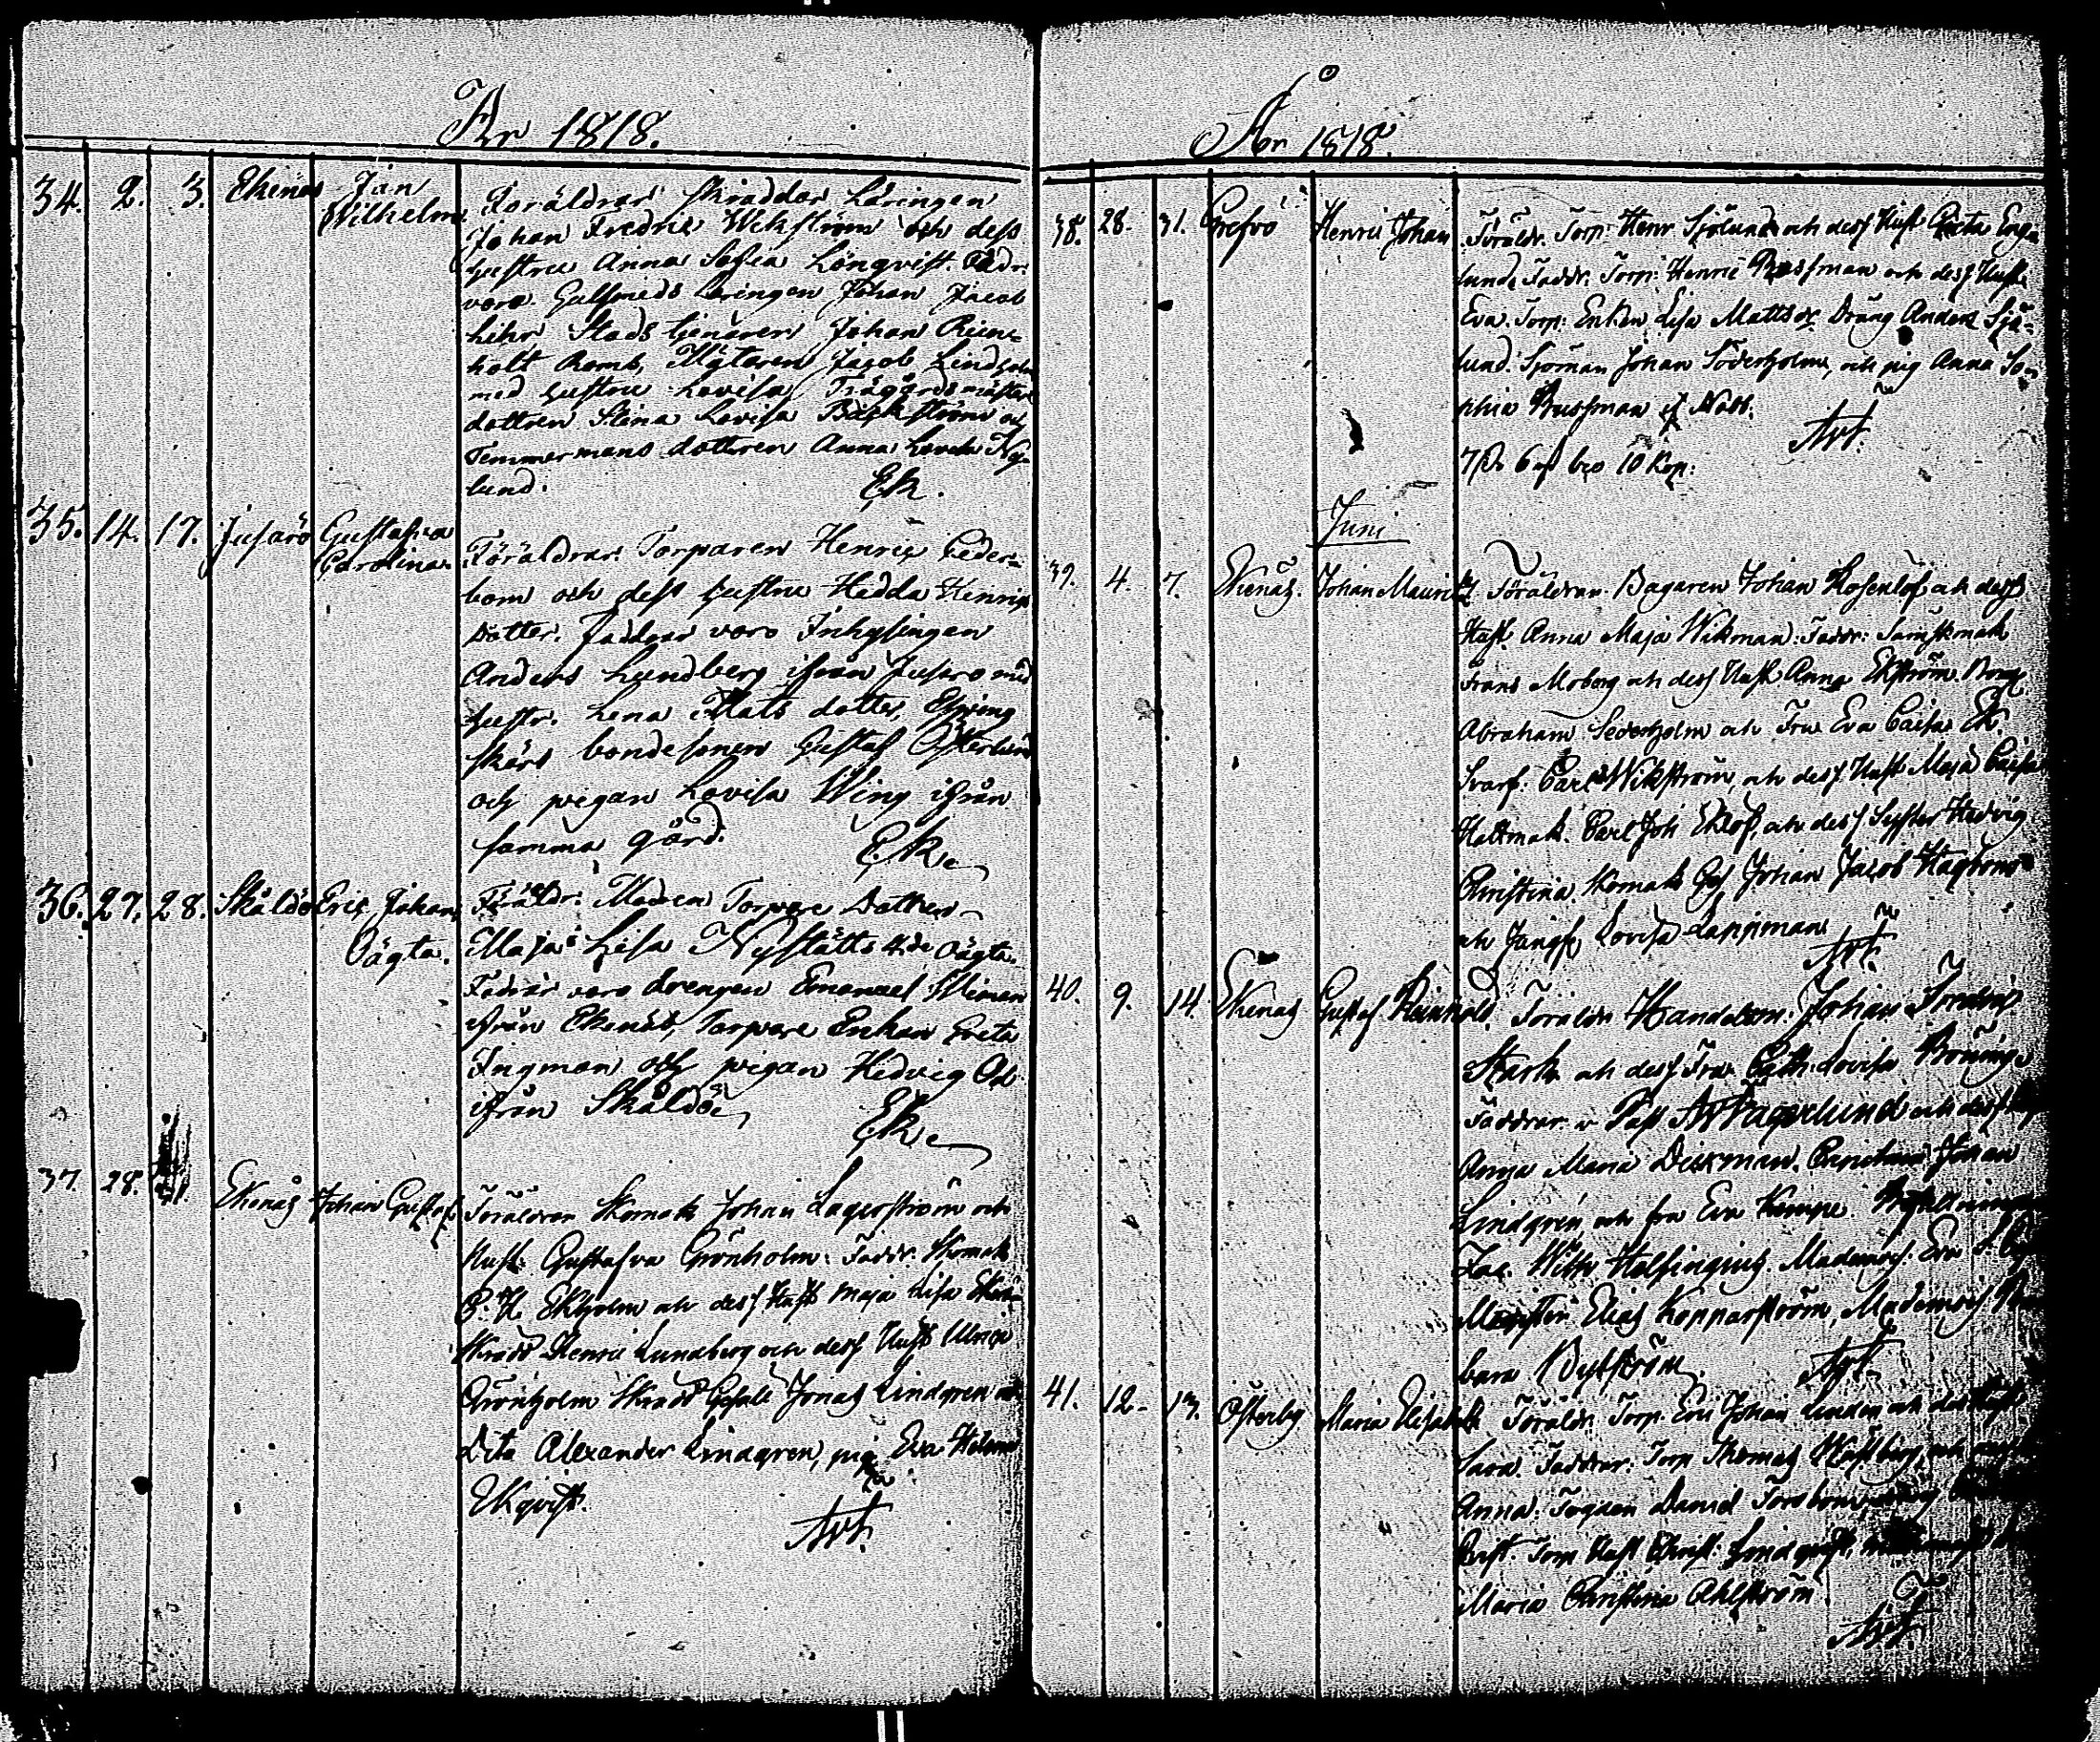 År 1818.
34. 2. 3. Ekenäs Jan Wilhelm.
Föräldrar Skraddar Läringen
Johan Fredric Wekström och dess
hustru Anna Sofia Lönqvist. Fadr.
voro. Gullsmeds Läringen Johan Jacob
Stads tjenaren Johan
Jacob Lindholm
med hustru Lovisa Trägårdsmästare
dottren Stina Lovisa Bäckström och
Temmermans dottren Anna Lovisa Ny-
lund. Ek.
35. 14. 17. Jusarö Gustafva Carolina.
Föräldrar Torparen Henric Ceder-
bom och dess hustru Hedda Henrics
Dotter. Faddrar voro Inhysingen
Anders Lundberg ifrån Jusarö med
hustr. Lena Mats dotter, Elgsing
skärs bondesonen Gustaf Österlund
och pigan Lovisa Wing ifrån
samma gård. Ek.
36. 27. 28. Skåldö Eric Johan Oägta.
Föräldr: Torpare Dottren
Maja Lisa Nystätts 4de Oägta.
Fadrar voro drengen Emanuel Wiman
ifrån Ekenäs, Torpare Enkan Greta
Ingman och pigan Hedvig Ek
ifrån Skåldö. Ek.
37. 28. 31. Ekenäs Johan Gustaf
Föräldrar Skomak Johan Lagerström och
Hust. Gustafva Grönholm. Faddr. Skomak
C. H. Ekholm och dess Hust Maja Lisa
Skradd Henric Lundberg och dess Hust Ulrica
Grönholm Skradd Gesäll Jonas Lindgren och
Dito Alexander Lindgren, pig Eva Helena
Ekqvist.
År 1818.
38. 28. 31. Grefvö Henric Johan
Föräldr. Torp. Henr Sjölund och dess Hust Greta Eng-
lund. Faddr. Torp. Henric Russman och dess Hust.
Eva. Torp: Enkan Lisa Mattsdr Dräng Anders Sjö-
lund. Sjöman Johan Söderholm, och pig Anna So-
phia Russman
10 Kop:
Juni
39. 4. 7. Ekenäs. Johan Mauritz
Föräldrar. Bagaren Johan Rosenlöf och dess
Hust. Anna Maja Wikman. Faddr: Sämskmak
Frans Moberg och dess Hust Anna Ekström. Borg
Abraham Sederholm och Fru Eva Caisa Ek.
Svarf. Carl Wikström, och dess Hust Maja Caisa
Hattmak. Carl Joh Eklöf, och dess Syster Hedvig
Christina. Skomak Ges Johan Jacob Hagbom
och Jungf. Lovisa Lappman
40. 9. 14. Ekenäs Gustaf Reinhold.
Föräldr Handelsm. Johan Fredric
Stark och dess Fru Cath. Lovisa
Faddrar v Past Fagerlund och dess
Anna Maria Dickman. Johan
Lindgren och fru Eva Kempe.
Jac. Wilh Helsingius Madmois. Eva
Elias Kopparström, Mademois
bara Byström
41. 12. 13. Österby Maria Elisabeth
Föräldr. Torp. Eric Johan Linden och dess Hust
Sara. Faddrar. Torp Thomas
Anna. Daniel Forsbom,
Christ. Torp Hust Christ: Lindqvist,
Maria Christina Ahlström.